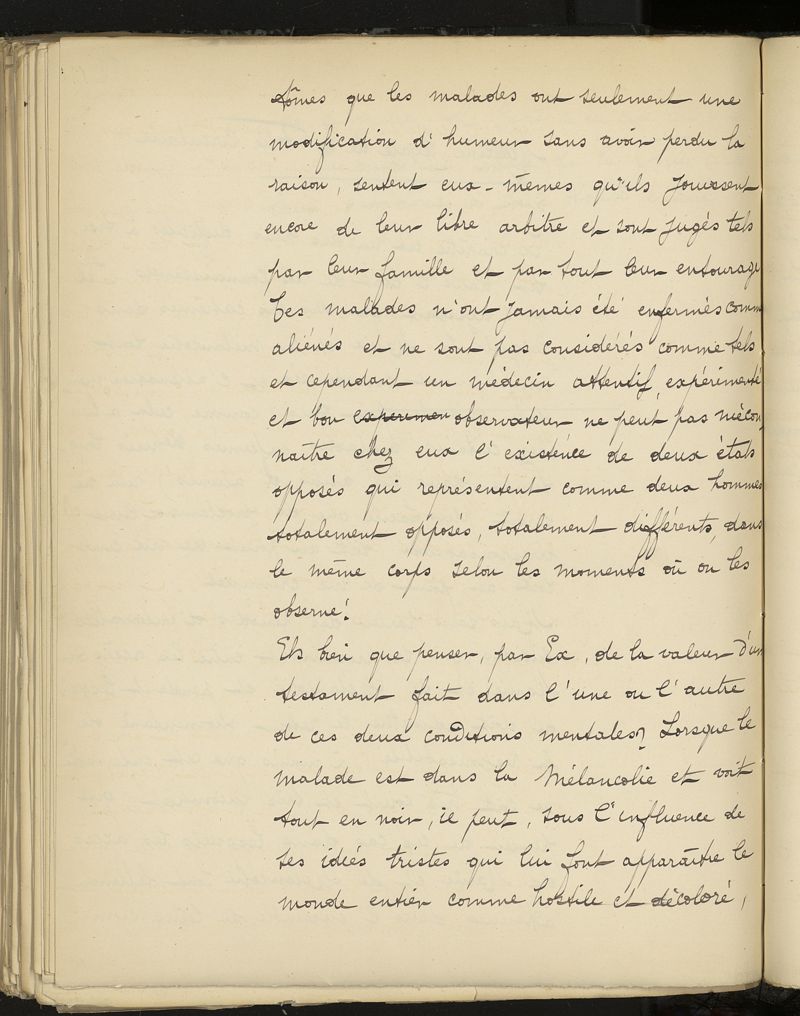 tômes que les malades ont seulement une
modification d'humeur sans avoir perdu la
raison, sentent eux-mêmes qu'ils jouissent
encore de leur libre arbitre et sont jugés tels
par leur famille et par tout leur entourage
Ces malades n'ont jamais été enfermés comm
aliénés et ne sont pas considérés comme tels
et cependant un médecin attentif, expérimenté
et bon observateur ne peut pas mécon
naître chez eux l'existence de deux états
opposés qui représentent comme deux hommes
totalement opposés, totalement différents, dans
le même corps selon les moments où on les
observe!
Eh bien que penser, par Ex, de la valeur d'un
testament fait dans l'une ou l'autre
de ces deux conditions mentales? Lorsque le
malade est dans la Mélancolie et voit
tout en noir, il peut, sous l'influence de
ses idées tristes qui lui font apparaître le
monde entier comme hostile et décoloré,